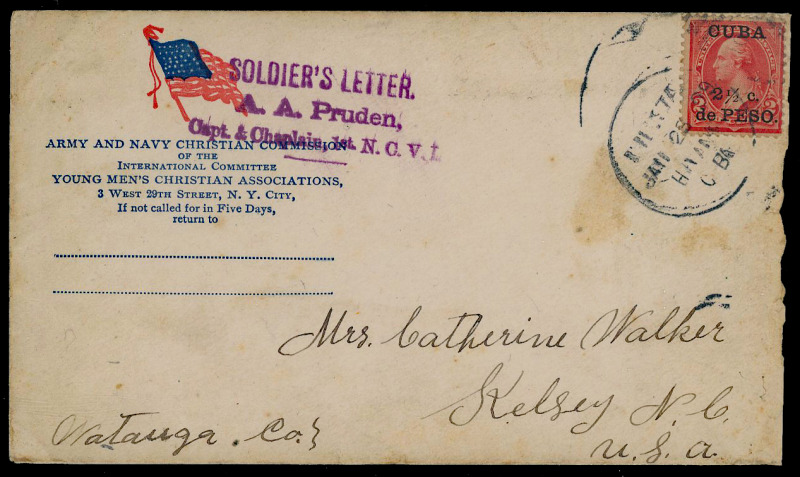 SOLDIER'S LETTER.
A. A. Pruden,
Capt. & Chaplain, 1st. N. C. V. I.
ARMY AND NAVY CHRISTIAN COMMISSION
OF THE
INTERNATIONAL COMMITTEE
YOUNG MEN'S CHRISTIAN ASSOCIATIONS,
3 WEST 29TH STREET, N. Y. CITY,
If not called for in Five Days,
return to
CUBA
2
2½ c.
de PESO.
JAN 28
Mrs. Catherine Walker
Kelsey N. C.
U. S. A.
Watauga Co.